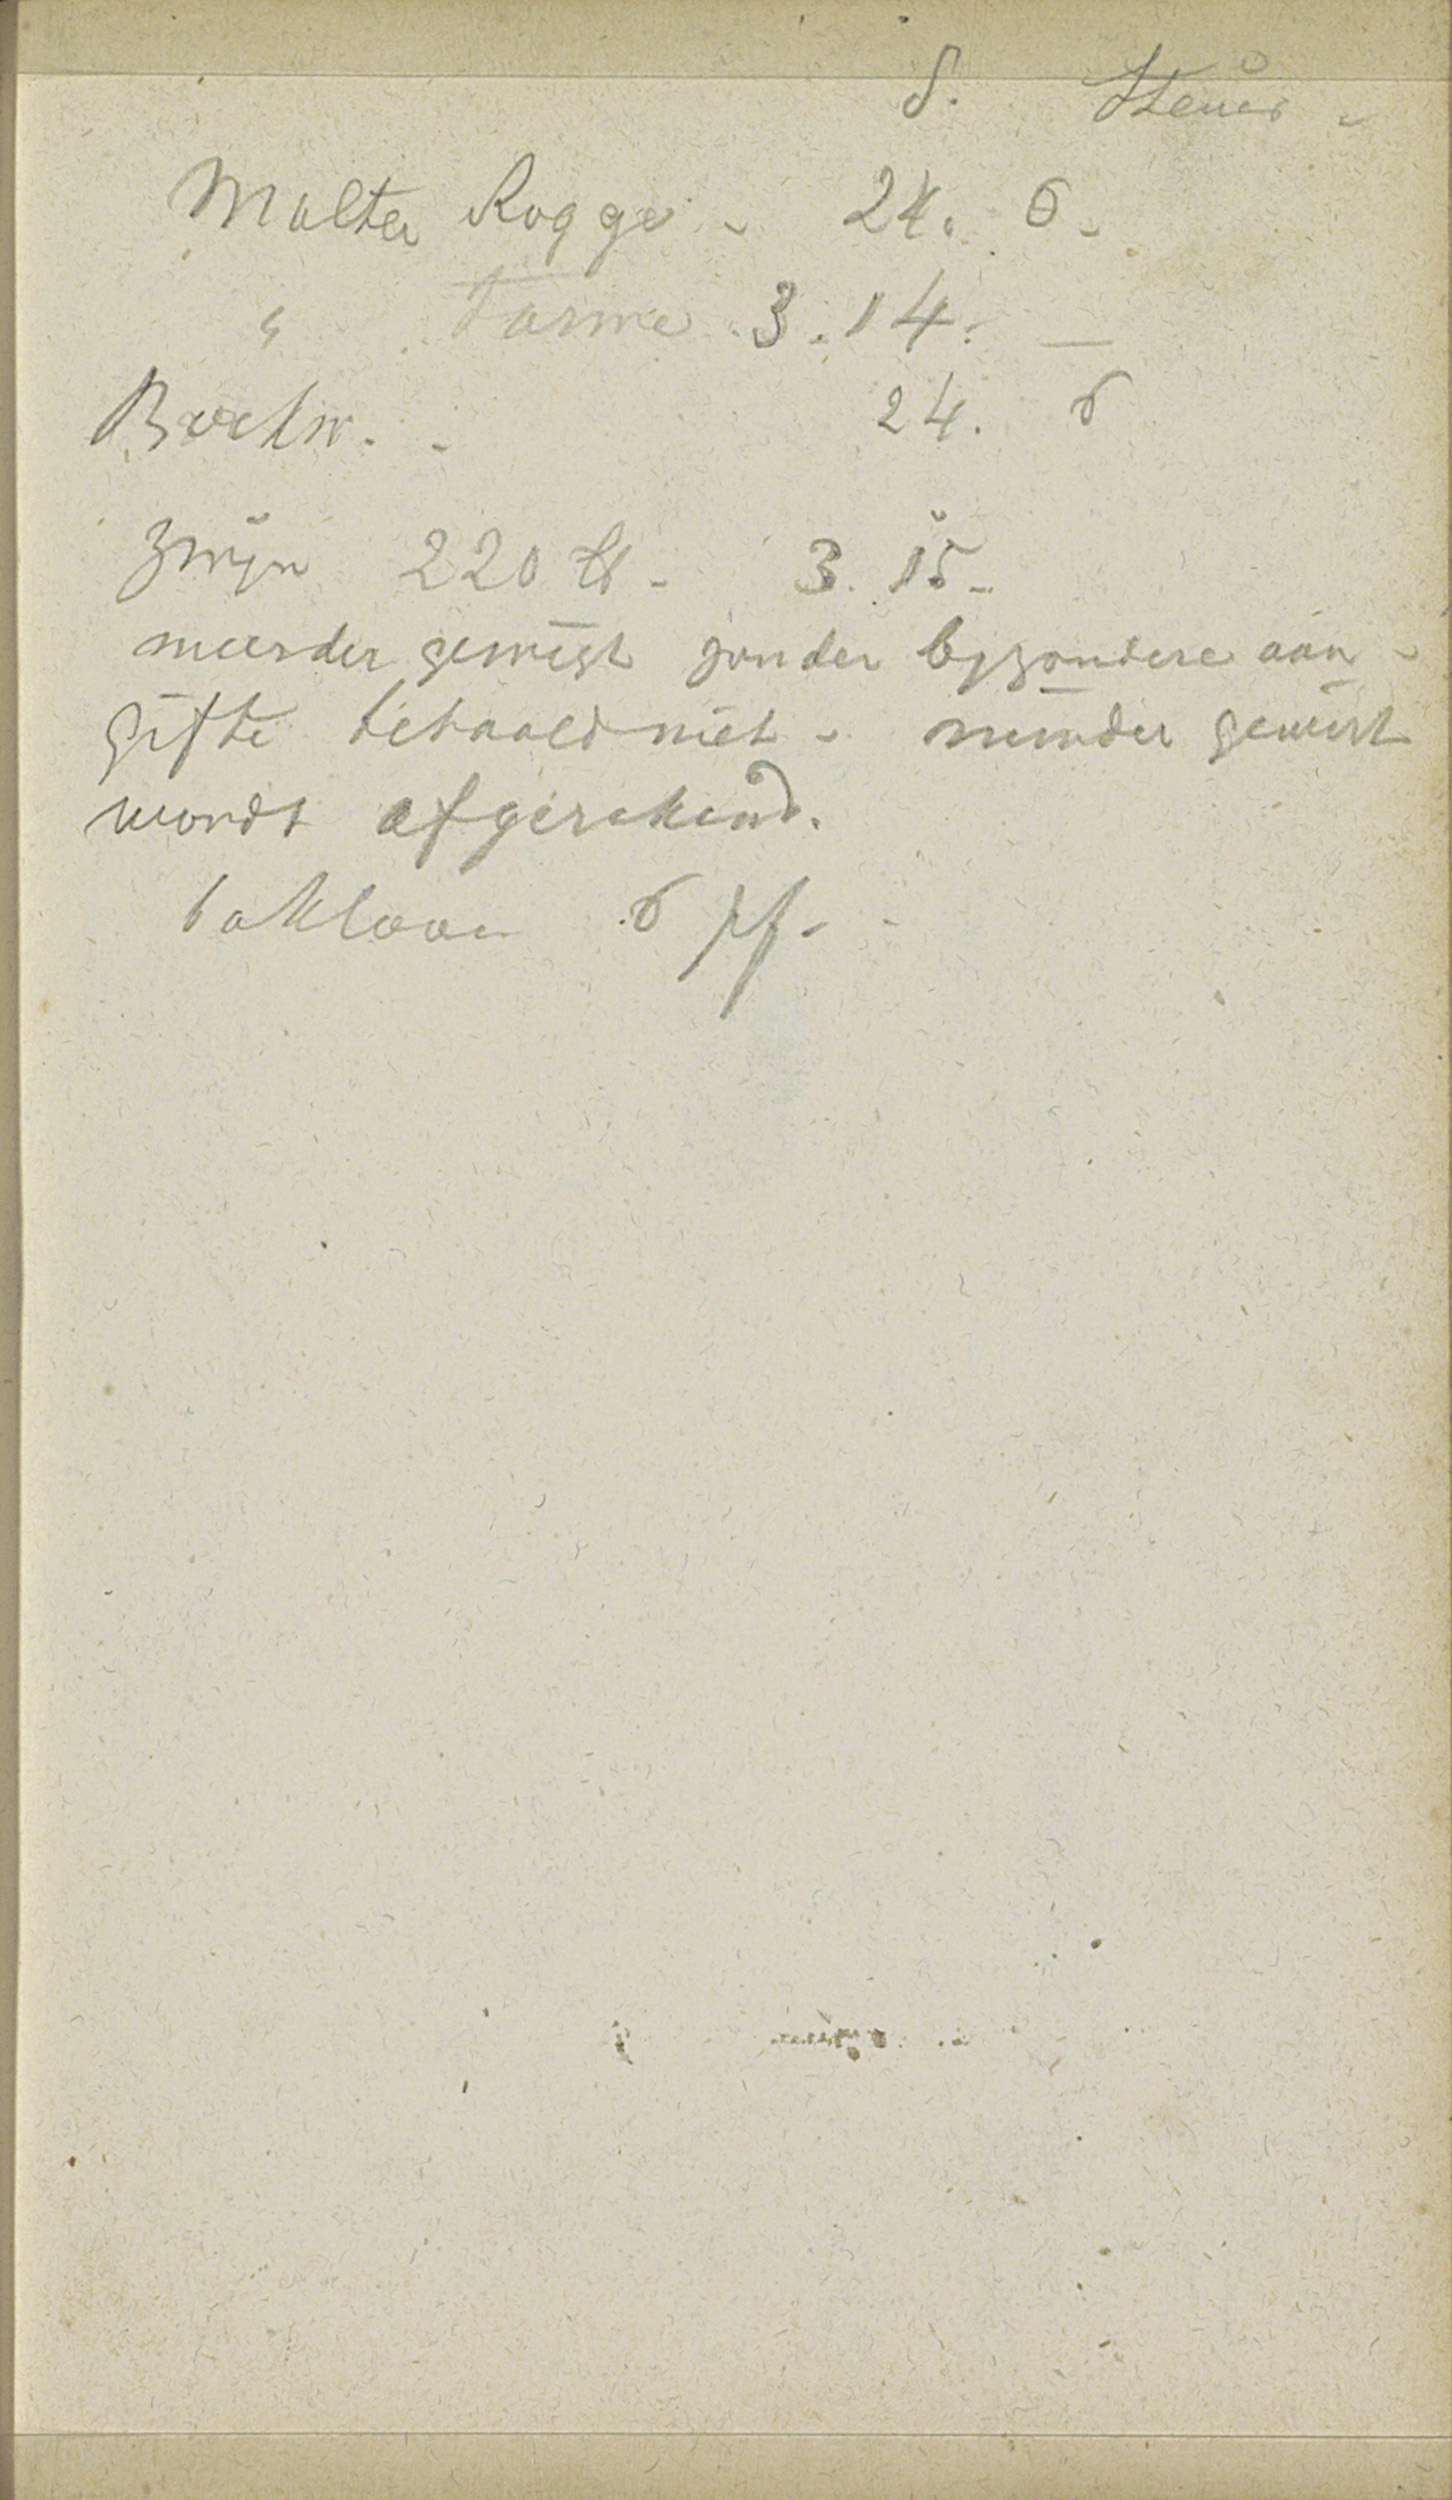 S. Steuer -
Malter Rogge - 24. 6 -
" Tarwe 3. 14. —
Boekw. - 24. 6
Zwyn 220 ℔ - 3. 15 -
meerder gewigt zonder byzondere aan -
gifte betaald niet - minder gewigt
wordt afgerekend.
bakloon 6 pf -